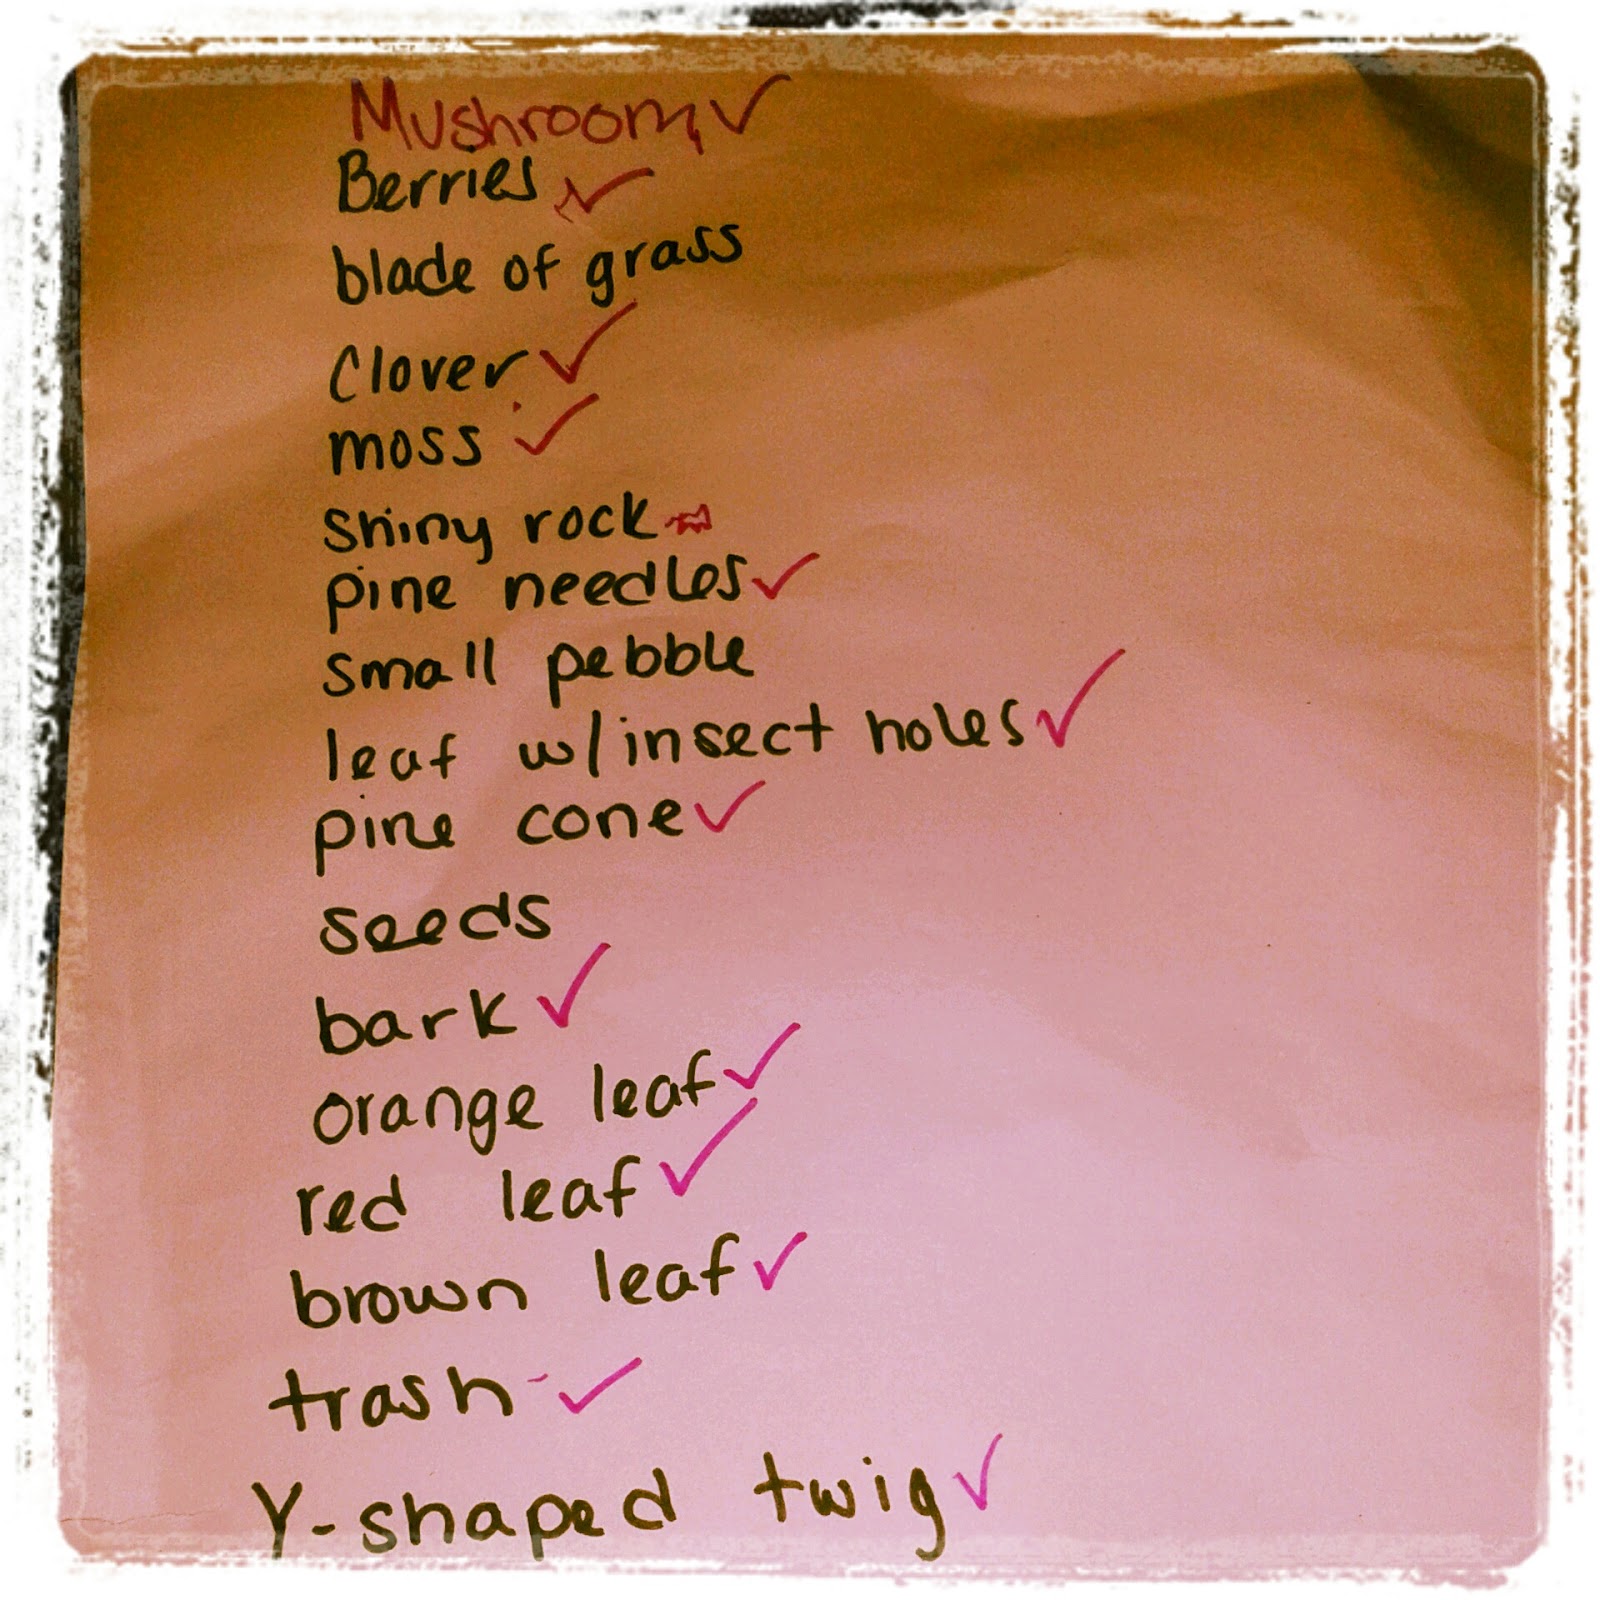 Mushroom ✓
Berries ✓
blade of grass
Clover ✓
moss ✓
shiny rock
pine needles ✓
small pebble
leaf w/insect holes ✓
pine cone ✓
seeds
bark ✓
orange leaf ✓
red leaf ✓
brown leaf ✓
trash ✓
Y-shaped twig ✓